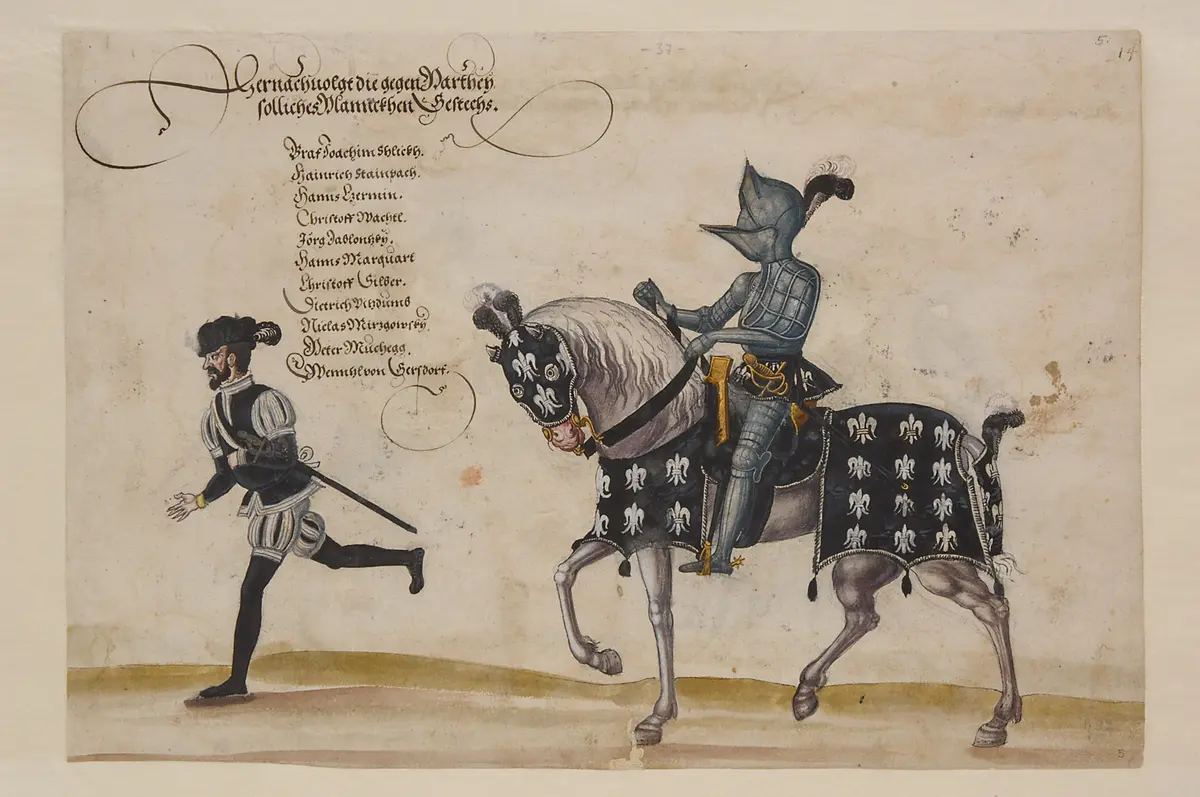 - 37 -
5.
14
Hernachuolgt die gegen Parthey
solliches Planckhen Gestechs.
Graf Joachim Shlickh.
Hainrich Stainpach.
Hanns Czermin.
Christoff Wachtl.
Jörg Jablonskÿ.
Hanns Marquart
Christoff Gilber.
Dietrich Vizdumb
Niclas Mirzgowskÿ.
Peter Muchegg.
von Gersdorf.
5